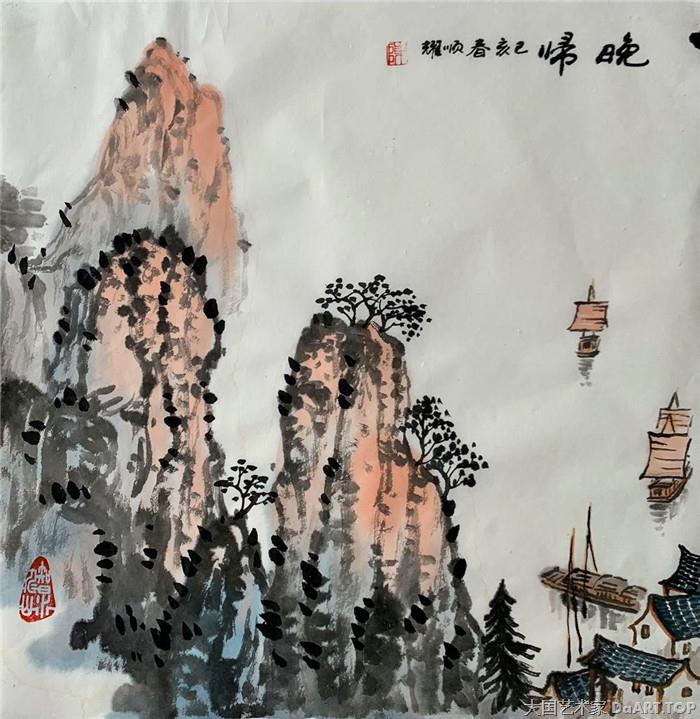 晚归
己亥春顺耀
大国艺术家 DaART.TOP